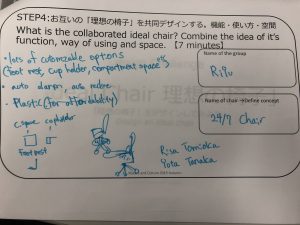 STEP4:お互いの「理想の椅子」を共同デザインする。機能・使い方・空間
What is the collaborated ideal chair? Combine the idea of it's function, way of using and space. 【7 minutes】
• lots of customizable options
(foot rest, cup holder, compartment space) etc
• auto
• Plastic (for affordability)
space cupholder
foot rest
Name of the group
Name of chair →Define concept
24/7 Chair
Risa Tomioka
Yota Tanaka